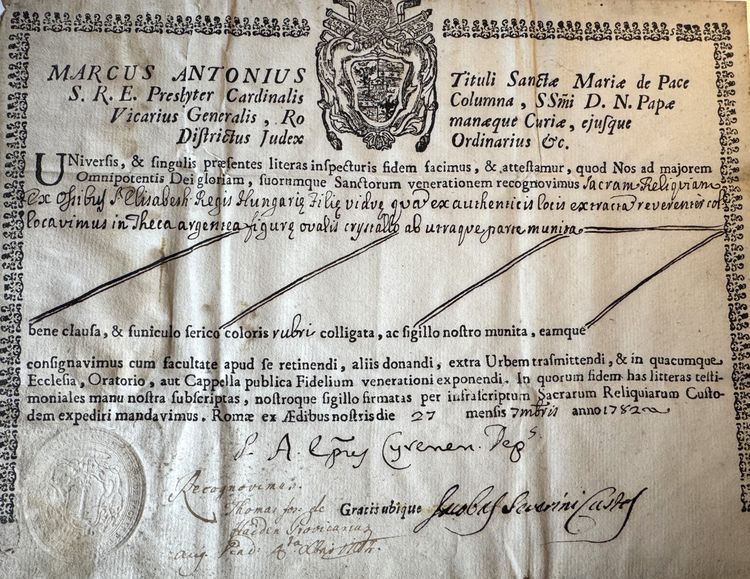 MARCUS ANTONIUS Tituli Sanctæ Mariæ de Pace
S. R. E. Presbyter Cardinalis Columna, SSm̃i D. N. Papæ
Vicarius Generalis, Ro manæque Curiæ, ejusque
Districtus Judex Ordinarius &c.
UNiversis, & singulis præsentes literas inspecturis fidem facimus, & attestamur, quod Nos ad majorem
Omnipotentis Dei gloriam, suorumque Sanctorum venerationem recognovimus Sacram Reliquiam
Ex Ossibus S. Elisabeth Regis Hungariæ Filiæ viduæ quam ex authenticis locis extractam reverenter col
locavimus in Theca argentea figuræ ovalis crystallo ab utraque parte munita
bene clausa, & funiculo serico coloris rubri colligata, ac sigillo nostro munita, eamque
consignavimus cum facultate apud se retinendi, aliis donandi, extra Urbem trasmittendi, & in quacumque
Ecclesia, Oratorio, aut Cappella publica Fidelium venerationi exponendi. In quorum fidem has litteras testi-
moniales manu nostra subscriptas, nostroque sigillo firmatas per infrascriptum Sacrarum Reliquiarum Custo-
dem expediri mandavimus. Romæ ex Ædibus nostris die 27 mensis 7mbris anno 1782
A. Epũs Cyrenen. Deps
Recognovimus.
Thomas Jos. de Gratis ubique Jacobus Severini Custos
Haiden Provicarius
Aug. Vind.